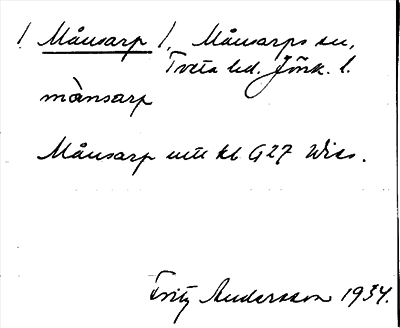 ! Månsarp /, Månsarps sn,
Tveta hd. Jönk. l.
mànsarp
Månsarp
Fritz Andersson 1934.